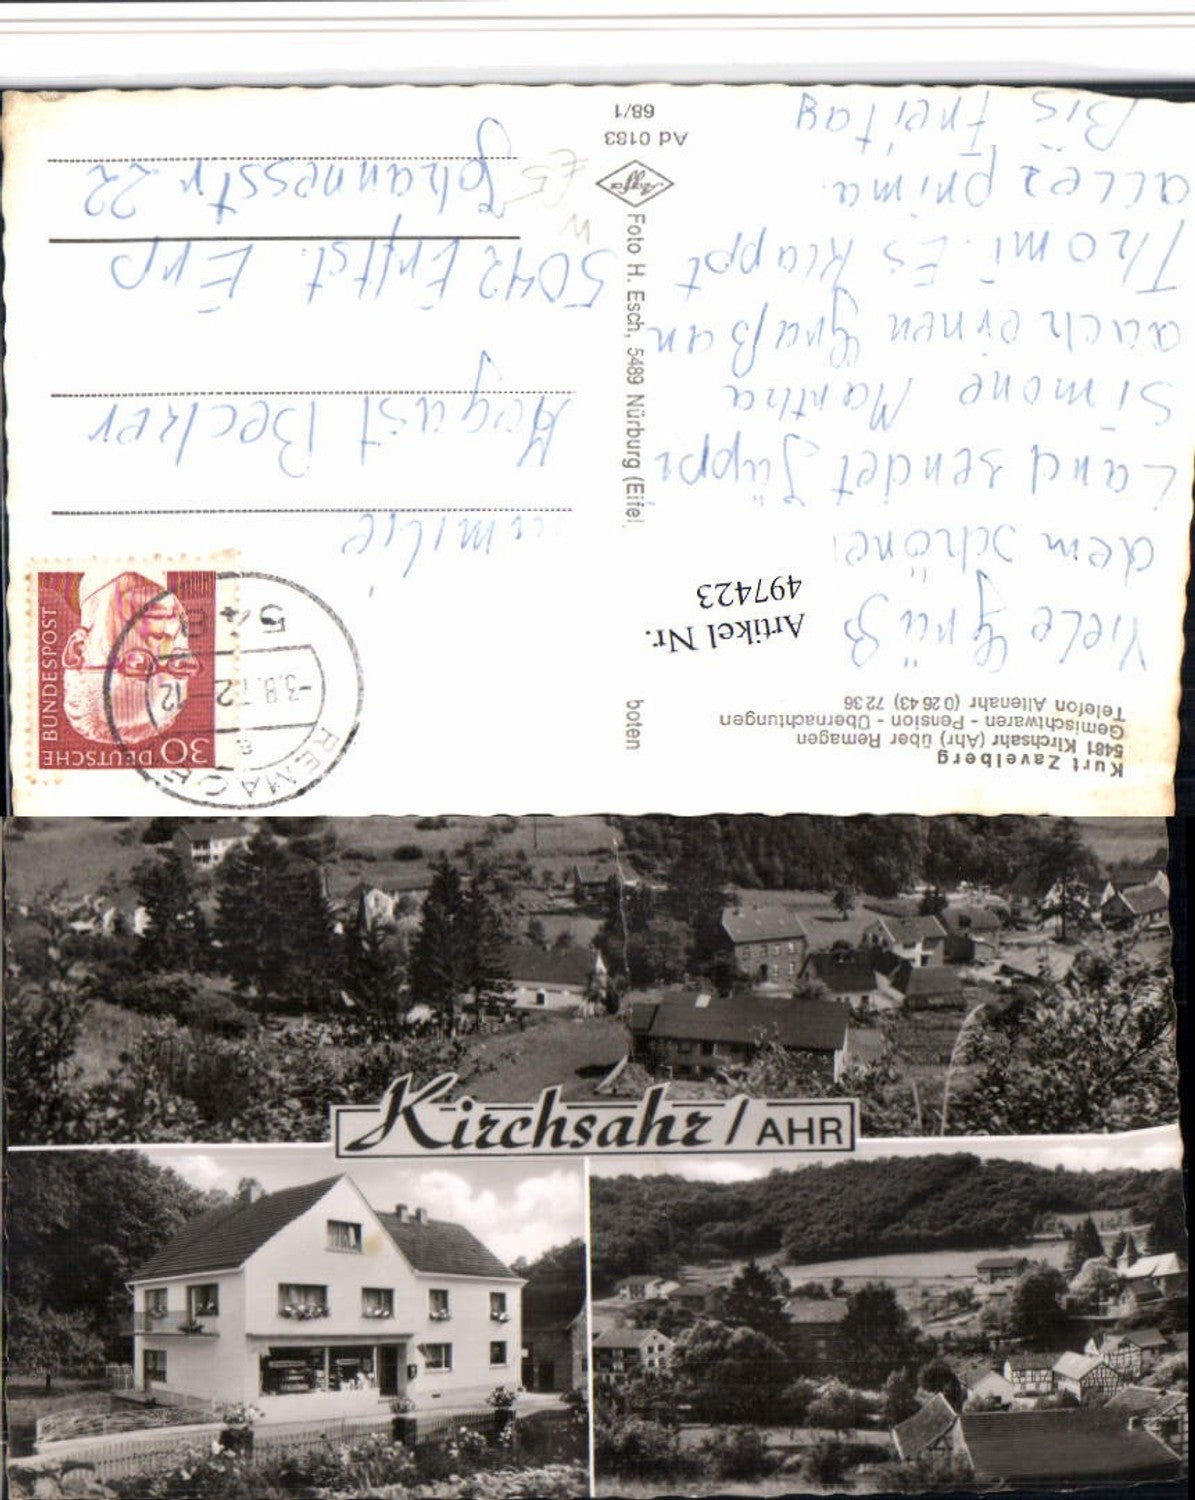 Kurt Zavelberg
5481 Kirchsahr (Ahr) über Remagen
Gemischtwaren - Pension - Übernachtungen
Telefon Altenahr (0 26 43) 72 36
Viele Grüß
dem schöne
Land sendet Jüppi
Simone Martha
auch einen Gruß an
Thomi. Es klappt
alles prima.
Bis Freitag
Artikel Nr.
497423
boten
Foto H. Esch, 5489 Nürburg (Eifel
Agfa
Ad 0183
68/1
DEUTSCHE BUNDESPOST
30
REMAGE
-3.8.72-12
e
548
milie
August Becker
5042 Erftst. Erp
Johannesstr. 22
Kirchsahr / AHR